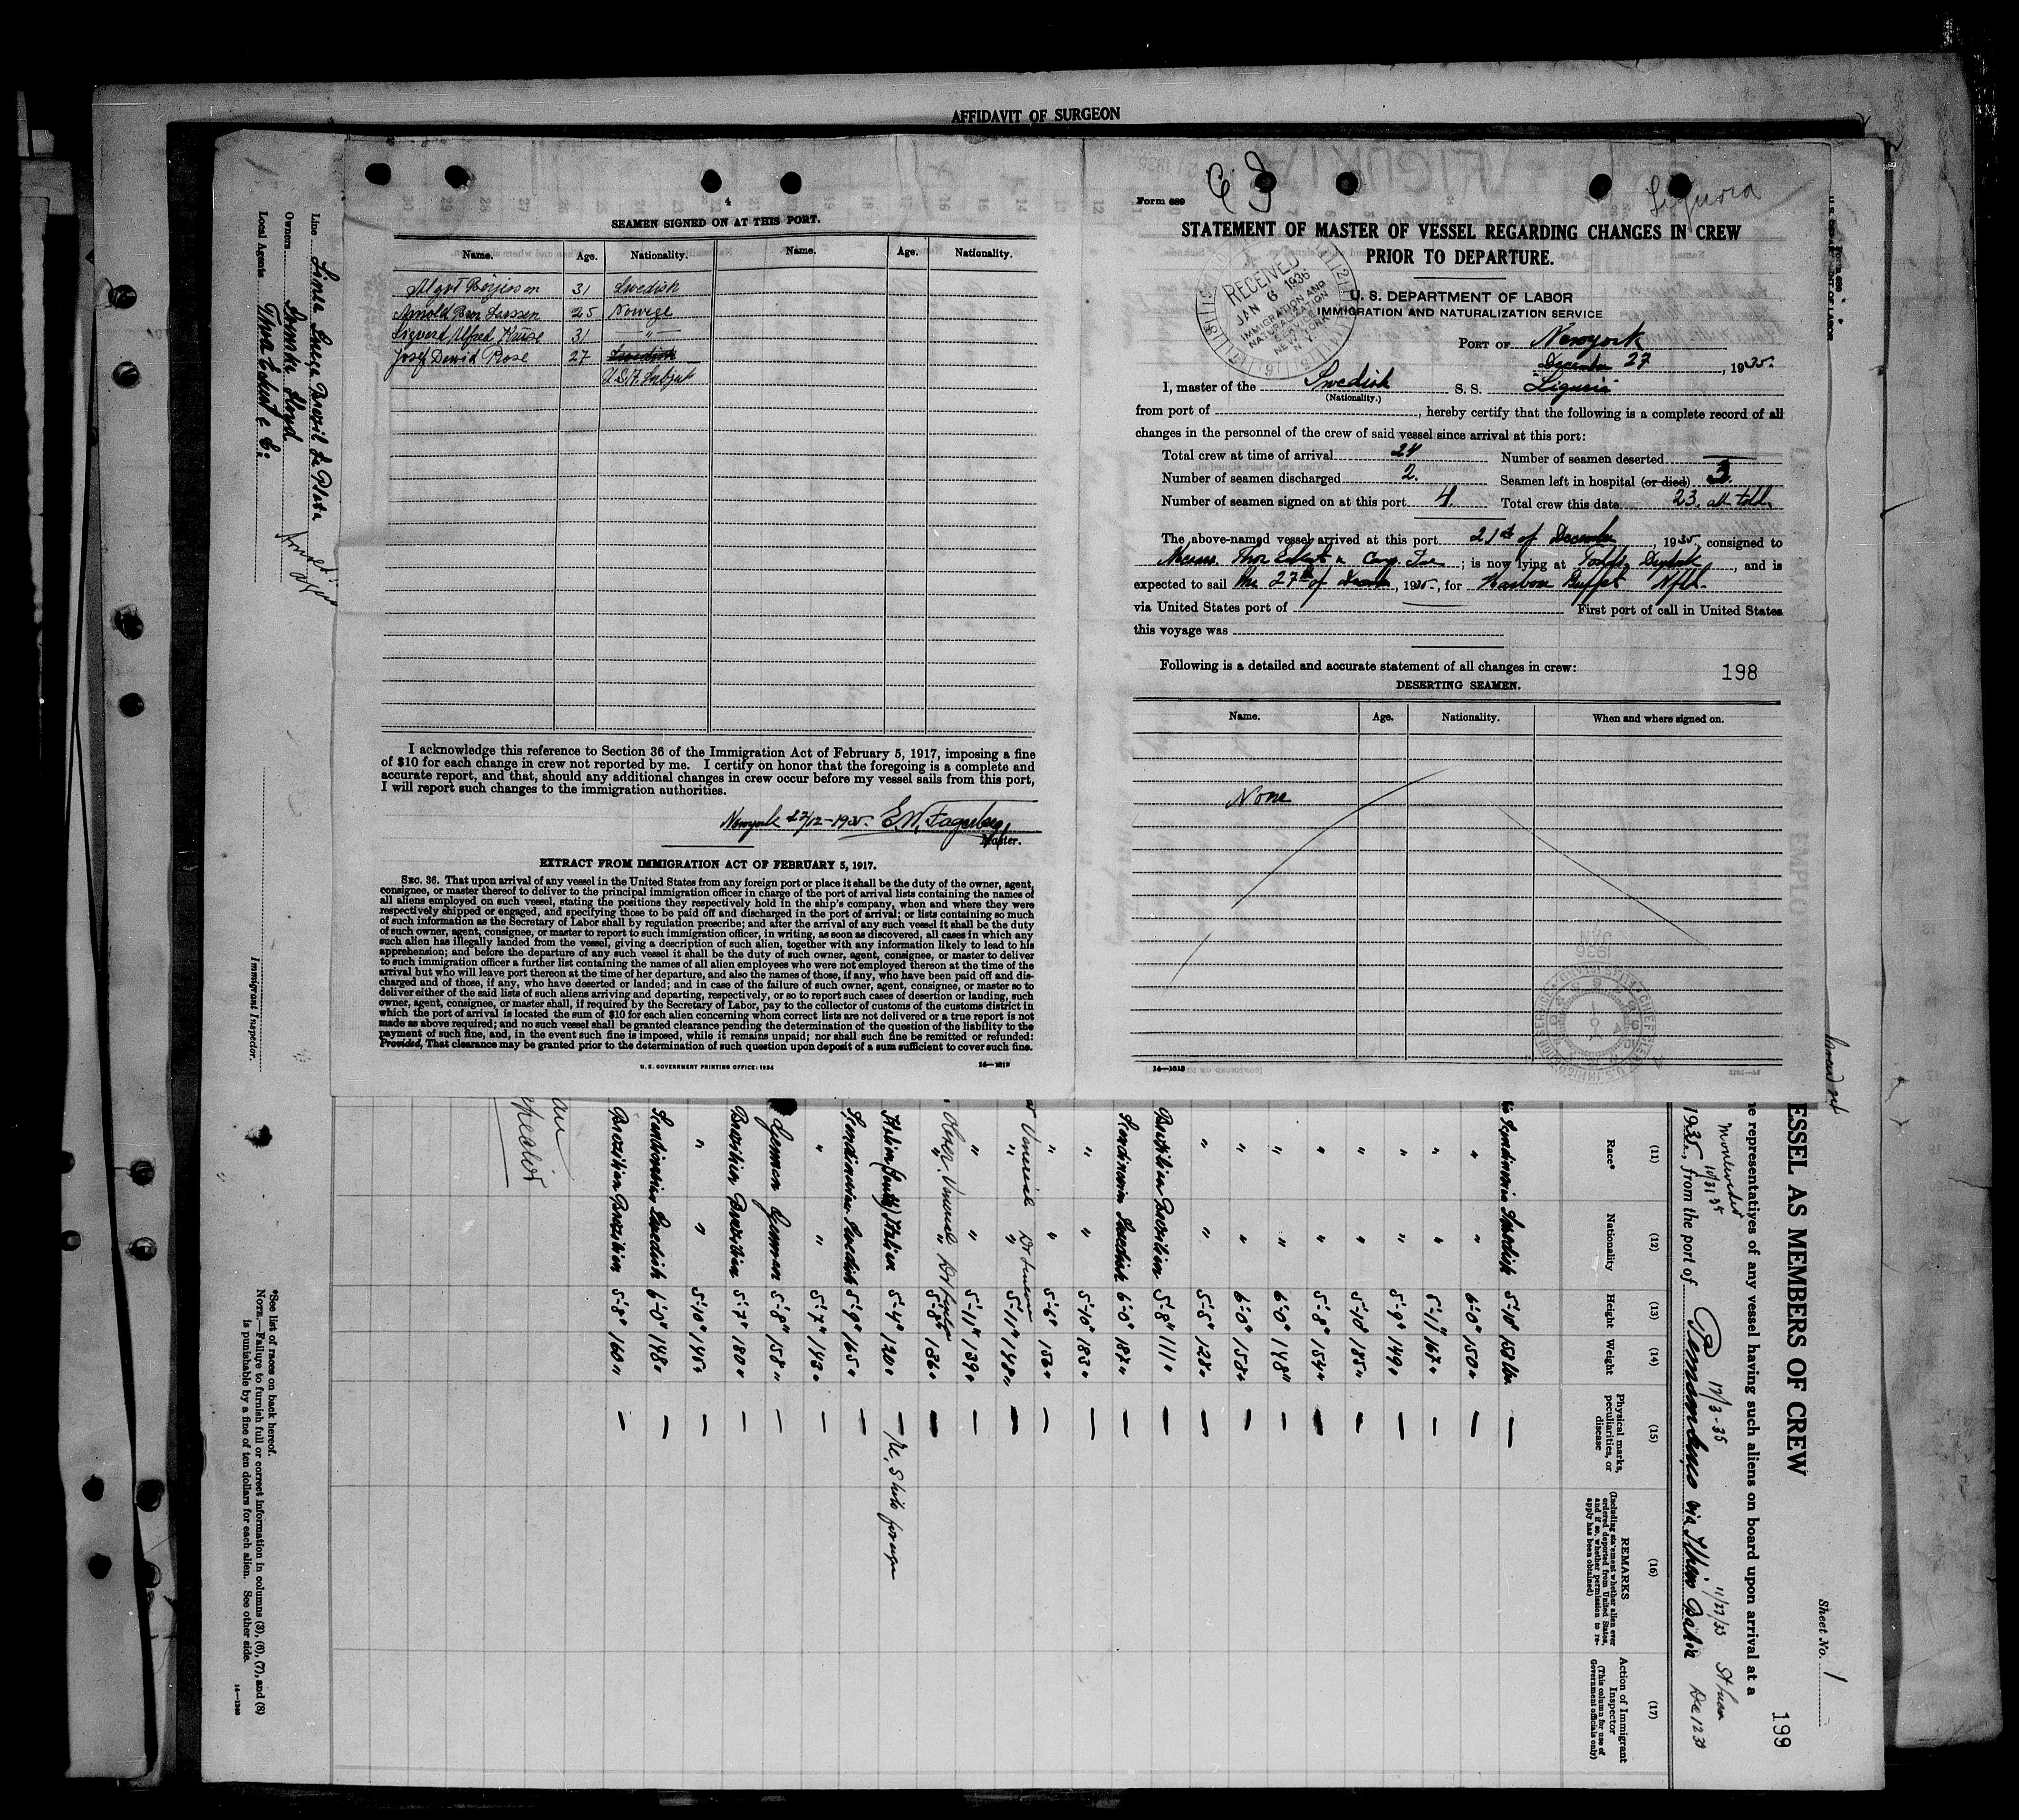 AFFIDAVIT OF SURGEON
4
SEAMEN SIGNED ON AT THIS PORT.
Name. Age. Nationality. Name. Age. Nationality.
Algot Börjesson 31 Swedish
Arnold Larssen 25 Norvege
Sigvard Alfred 31 "
Josef David Rose 27 Swedish
U.S.A. Subject
I acknowledge this reference to Section 36 of the Immigration Act of February 5, 1917, imposing a fine
of $10 for each change in crew not reported by me. I certify on honor that the foregoing is a complete and
accurate report, and that, should any additional changes in crew occur before my vessel sails from this port,
I will report such changes to the immigration authorities.
Newyork 27/12-1935. E.W. Fagerberg
Master.
EXTRACT FROM IMMIGRATION ACT OF FEBRUARY 5, 1917.
SEC. 36. That upon arrival of any vessel in the United States from any foreign port or place it shall be the duty of the owner, agent,
consignee, or master thereof to deliver to the principal immigration officer in charge of the port of arrival lists containing the names of
all aliens employed on such vessel, stating the positions they respectively hold in the ship's company, when and where they were
respectively shipped or engaged, and specifying those to be paid off and discharged in the port of arrival; or lists containing so much
of such information as the Secretary of Labor shall by regulation prescribe; and after the arrival of any such vessel it shall be the duty
of such owner, agent, consignee, or master to report to such immigration officer, in writing, as soon as discovered, all cases in which any
such alien has illegally landed from the vessel, giving a description of such alien, together with any information likely to lead to his
apprehension; and before the departure of any such vessel it shall be the duty of such owner, agent, consignee, or master to deliver
to such immigration officer a further list containing the names of all alien employees who were not employed thereon at the time of the
arrival but who will leave port thereon at the time of her departure, and also the names of those, if any, who have been paid off and dis-
charged and of those, if any, who have deserted or landed; and in case of the failure of such owner, agent, consignee, or master so to
deliver either of the said lists of such aliens arriving and departing, respectively, or so to report such cases of desertion or landing, such
owner, agent, consignee, or master shall, if required by the Secretary of Labor, pay to the collector of customs of the customs district in
which the port of arrival is located the sum of $10 for each alien concerning whom correct lists are not delivered or a true report is not
made as above required; and no such vessel shall be granted clearance pending the determination of the question of the liability to the
payment of such fine, and, in the event such fine is imposed, while it remains unpaid; nor shall such fine be remitted or refunded:
Provided, That clearance may be granted prior to the determination of such question upon deposit of a sum sufficient to cover such fine.
U.S. GOVERNMENT PRINTING OFFICE: 1934
14—1613
Form 689
Liguria
STATEMENT OF MASTER OF VESSEL REGARDING CHANGES IN CREW
PRIOR TO DEPARTURE.
RECEIVED
JAN 6 1936
IMMIGRATION AND
NATURALIZATION
NEW YORK
N.Y.
U. S. DEPARTMENT OF LABOR
IMMIGRATION AND NATURALIZATION SERVICE
PORT OF Newyork
December 27, 1935.
I, master of the Swedish S. S. "Liguria"
(Nationality.)
from port of , hereby certify that the following is a complete record of all
changes in the personnel of the crew of said vessel since arrival at this port:
Total crew at time of arrival 24 Number of seamen deserted —
Number of seamen discharged 2. Seamen left in hospital (or died) 3.
Number of seamen signed on at this port 4. Total crew this date 23. all told.
The above-named vessel arrived at this port 21st of December, 1935, consigned to
Messrs. Thor Eckert & Comp. Inc ; is now lying at Todds Drydock, and is
expected to sail the 27th of Decemb, 1935, for Harbour Buffet Nfld.
via United States port of First port of call in United States
this voyage was
Following is a detailed and accurate statement of all changes in crew:
198
DESERTING SEAMEN.
Name. Age. Nationality. When and where signed on.
None
14—1613
Line Linea Sueca Brazil La Plata
Owners Svenska Lloyd
Local Agents Thor Eckert & Co:
Immigrant Inspector.
Sheet No. 1
199
ESSEL AS MEMBERS OF CREW
e representatives of any vessel having such aliens on board upon arrival at a
Montevideo 10/31/35
1935, from the port of Pernambuco via Ilheos Bahia
(11) (12) (13) (14) (15) (16) (17)
Race* Nationality Height Weight Physical marks, peculiarities, or disease
REMARKS
(Including statement whether alien ever ordered deported from United States, and if so, whether permission to re-apply has been obtained)
Action of Immigrant Inspector
(This column for use of Government officials only)
Scandinavia Swedish 5-10" 159 lbs —
" " 6-0" 150" —
" " 5-11" 167" —
" " 5-9" 149" —
" " 5-10" 185" —
" " 5-8" 154" —
" " 6-0" 148" —
" " 6-0" 158" —
" " 5-8" 128" —
Brazilian Brazilian 5-8" 111" —
Scandinavia Swedish 6-0" 187" —
" " 5-10" 183" —
" " 5-6" 156" —
" " 5-11" 148" —
" " 5-11" 139" —
" " 5-8" 136" —
Italian (South) Italian 5-4" 120" —
Scandinavian Swedish 5-9" 165" —
" " 5-7" 143" —
German German 5-8" 158" —
Brazilian Brazilian 5-7" 180" —
" " 5-10" 145" —
Scandinavian Swedish 6-0" 148" —
Brazilian Brazilian 5-8" 160" —
*See list of races on back hereof.
NOTE.—Failure to furnish full or correct information in columns (3), (6), (7), and (8)
is punishable by a fine of ten dollars for each alien. See other side.
14—1240